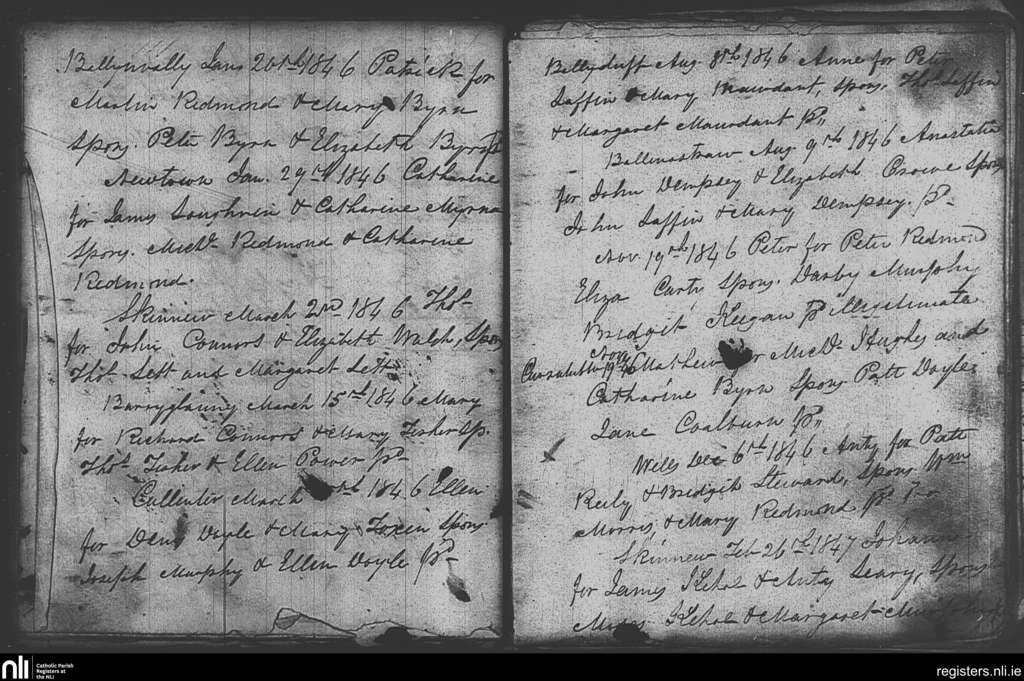 Ballinvally Jan. 20th 1846 Patrick for
Martin Redmond & Mary Byrn
Spons. Peter Byrn & Elizabeth Byrn
Newtown Jan. 29th 1846 Catharine
for James Loughrin & Catharine
Spons. Michl. Redmond & Catharine
Redmond.
Skinnew March 2nd 1846 Thos.
for John Connors & Elizabeth Walsh, Spons
Thos. Lett and Margaret Lett
March 15th 1846 Mary
for Richard Connors & Mary Fisher Sp.
Thos. Fisher & Ellen Power pd
March 1846 Ellen
for Denis Doyle & Mary Spons.
Joseph Murphy & Ellen Doyle pd
Ballyduff Aug. 8th 1846 Anne for Peter
Laffin & Mary Mawdant, Spons. Thos. Laffin
& Margaret Maurdant pd
Ballinastraw Aug. 9th 1846 Anastatia
for John Dempsey & Elizabeth Spons
John Laffin & Mary Dempsey. pd
Nov. 19th 1846 Peter for Peter Redmond
Eliza Carty Spons. Darby Murphy
Bridgit Keegan pd illigitimate
Nov.
19th 46 Mathew for Michl. Hughes and
Catharine Byrn Spons Patt Doyle
Jane Coalburn pd
Wells Dec 6th 1846 Anty for Patt
Reily & Bridgit Steward, Spons. Wm
Morris, & Mary Redmond pd
Skinnew Feb 26th 1847 Johanna
for James Kehoe & Anty Leary, Spons
Kehoe & Margaret
nli
Catholic Parish
Registers at
the NLI
registers.nli.ie